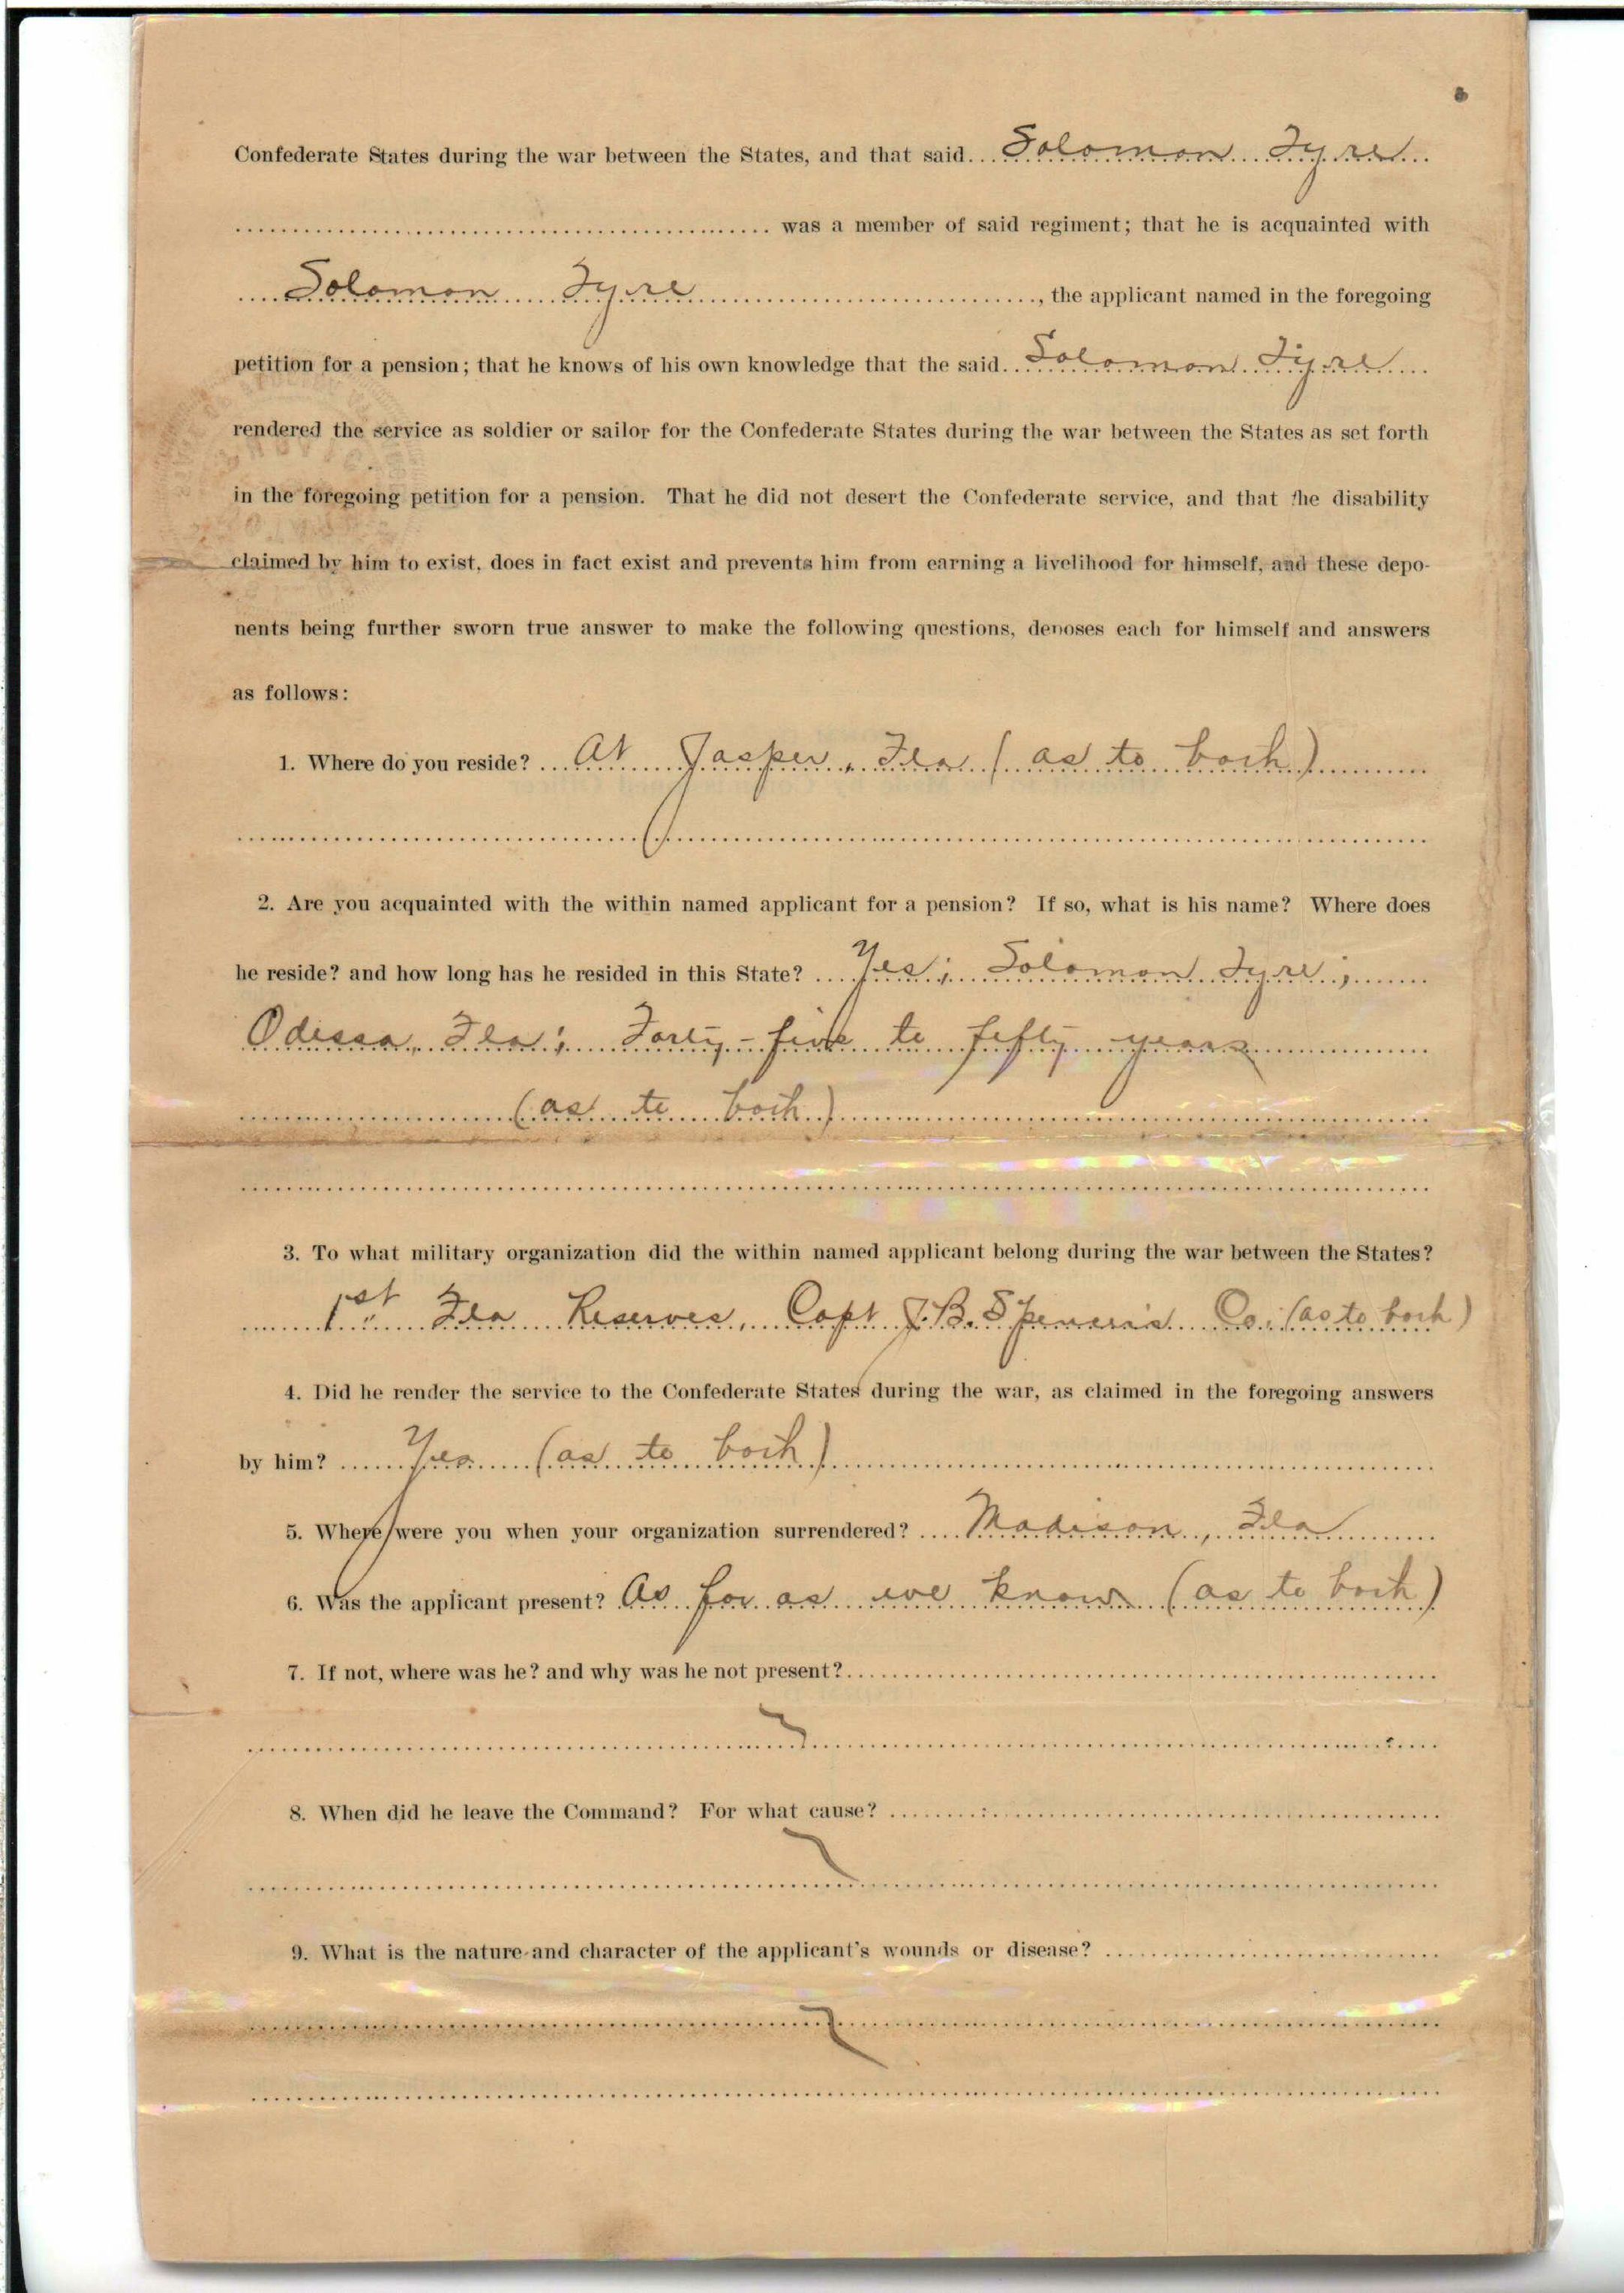 Confederate States during the war between the States, and that said Solomon Tyre
was a member of said regiment; that he is acquainted with
Solomon Tyre, the applicant named in the foregoing
petition for a pension; that he knows of his own knowledge that the said Solomon Tyre
rendered the service as soldier or sailor for the Confederate States during the war between the States as set forth
in the foregoing petition for a pension. That he did not desert the Confederate service, and that the disability
claimed by him to exist, does in fact exist and prevents him from earning a livelihood for himself, and these depo-
nents being further sworn true answer to make the following questions, deposes each for himself and answers
as follows:
1. Where do you reside? At Jasper, Fla (as to both)
2. Are you acquainted with the within named applicant for a pension? If so, what is his name? Where does
he reside? and how long has he resided in this State? Yes; Solomon Tyre;
Odessa, Fla; Forty-five to fifty years
(as to both)
3. To what military organization did the within named applicant belong during the war between the States?
1st Fla Reserves, Capt J.B. Spencer's Co. (as to both)
4. Did he render the service to the Confederate States during the war, as claimed in the foregoing answers
by him? Yes (as to both)
5. Where were you when your organization surrendered? Madison, Fla
6. Was the applicant present? As far as we know (as to both)
7. If not, where was he? and why was he not present?
8. When did he leave the Command? For what cause?
9. What is the nature and character of the applicant's wounds or disease?